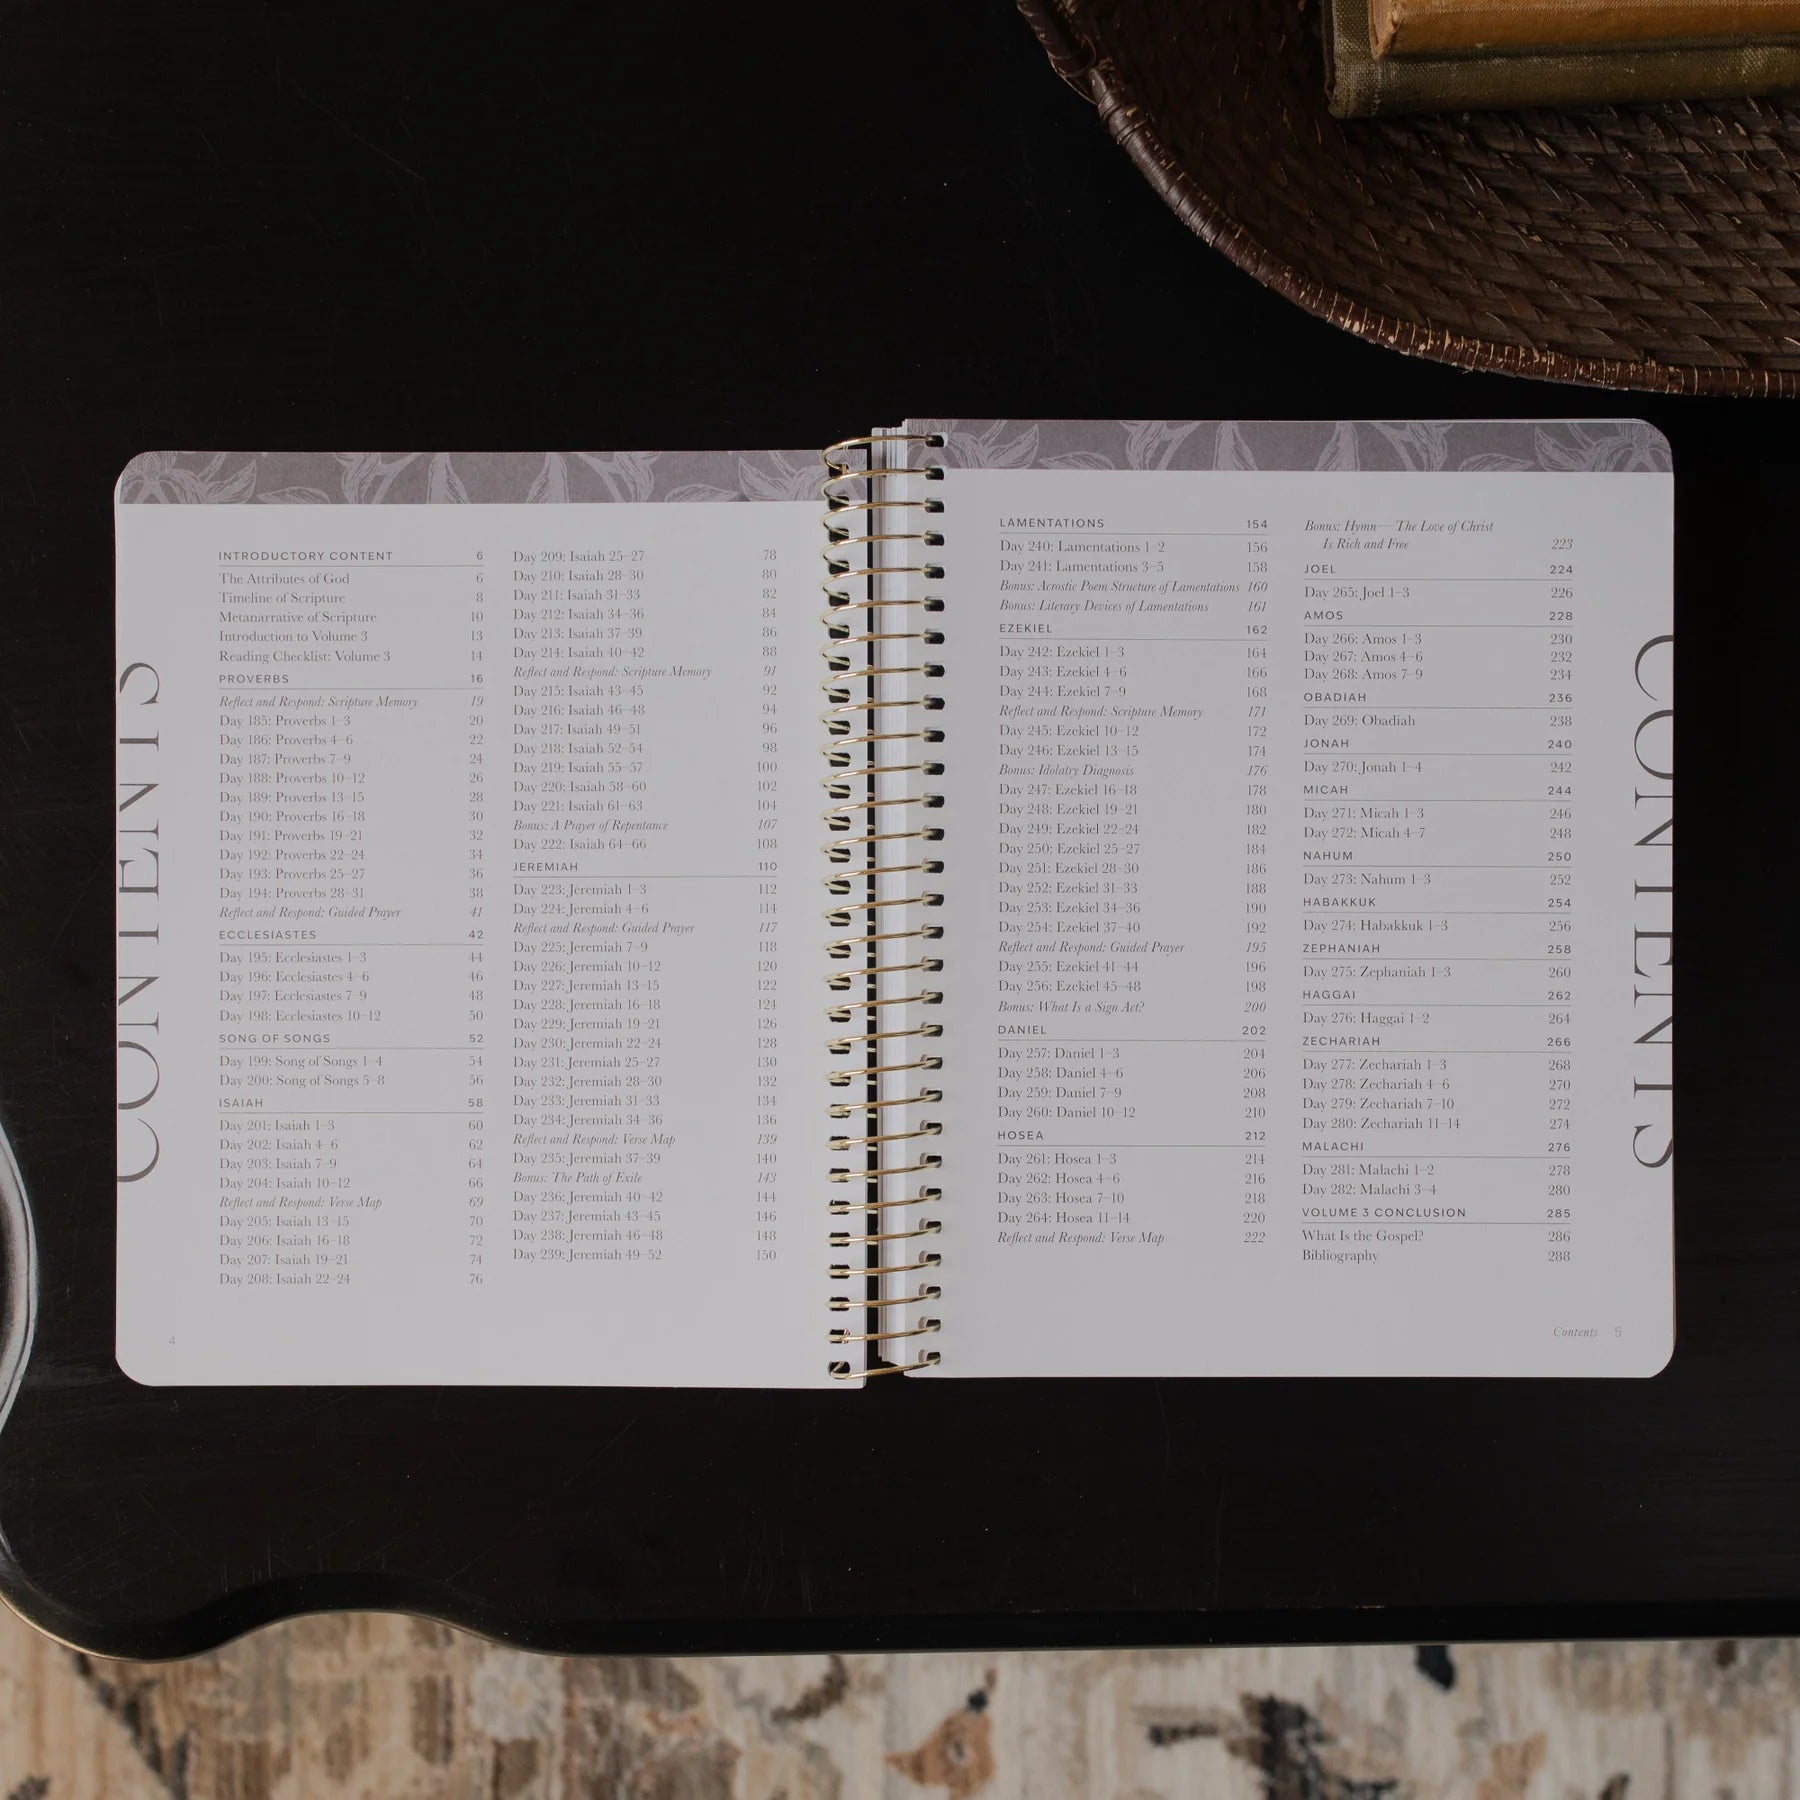 CONTENTS
INTRODUCTORY CONTENT 6
The Attributes of God 6
Timeline of Scripture 8
Metanarrative of Scripture 10
Introduction to Volume 3 13
Reading Checklist: Volume 3 14
PROVERBS 16
Reflect and Respond: Scripture Memory 19
Day 185: Proverbs 1–3 20
Day 186: Proverbs 4–6 22
Day 187: Proverbs 7–9 24
Day 188: Proverbs 10–12 26
Day 189: Proverbs 13–15 28
Day 190: Proverbs 16–18 30
Day 191: Proverbs 19–21 32
Day 192: Proverbs 22–24 34
Day 193: Proverbs 25–27 36
Day 194: Proverbs 28–31 38
Reflect and Respond: Guided Prayer 41
ECCLESIASTES 42
Day 195: Ecclesiastes 1–3 44
Day 196: Ecclesiastes 4–6 46
Day 197: Ecclesiastes 7–9 48
Day 198: Ecclesiastes 10–12 50
SONG OF SONGS 52
Day 199: Song of Songs 1–4 54
Day 200: Song of Songs 5–8 56
ISAIAH 58
Day 201: Isaiah 1–3 60
Day 202: Isaiah 4–6 62
Day 203: Isaiah 7–9 64
Day 204: Isaiah 10–12 66
Reflect and Respond: Verse Map 69
Day 205: Isaiah 13–15 70
Day 206: Isaiah 16–18 72
Day 207: Isaiah 19–21 74
Day 208: Isaiah 22–24 76
Day 209: Isaiah 25–27 78
Day 210: Isaiah 28–30 80
Day 211: Isaiah 31–33 82
Day 212: Isaiah 34–36 84
Day 213: Isaiah 37–39 86
Day 214: Isaiah 40–42 88
Reflect and Respond: Scripture Memory 91
Day 215: Isaiah 43–45 92
Day 216: Isaiah 46–48 94
Day 217: Isaiah 49–51 96
Day 218: Isaiah 52–54 98
Day 219: Isaiah 55–57 100
Day 220: Isaiah 58–60 102
Day 221: Isaiah 61–63 104
Bonus: A Prayer of Repentance 107
Day 222: Isaiah 64–66 108
JEREMIAH 110
Day 223: Jeremiah 1–3 112
Day 224: Jeremiah 4–6 114
Reflect and Respond: Guided Prayer 117
Day 225: Jeremiah 7–9 118
Day 226: Jeremiah 10–12 120
Day 227: Jeremiah 13–15 122
Day 228: Jeremiah 16–18 124
Day 229: Jeremiah 19–21 126
Day 230: Jeremiah 22–24 128
Day 231: Jeremiah 25–27 130
Day 232: Jeremiah 28–30 132
Day 233: Jeremiah 31–33 134
Day 234: Jeremiah 34–36 136
Reflect and Respond: Verse Map 139
Day 235: Jeremiah 37–39 140
Bonus: The Path of Exile 143
Day 236: Jeremiah 40–42 144
Day 237: Jeremiah 43–45 146
Day 238: Jeremiah 46–48 148
Day 239: Jeremiah 49–52 150
4
LAMENTATIONS 154
Day 240: Lamentations 1–2 156
Day 241: Lamentations 3–5 158
Bonus: Acrostic Poem Structure of Lamentations 160
Bonus: Literary Devices of Lamentations 161
EZEKIEL 162
Day 242: Ezekiel 1–3 164
Day 243: Ezekiel 4–6 166
Day 244: Ezekiel 7–9 168
Reflect and Respond: Scripture Memory 171
Day 245: Ezekiel 10–12 172
Day 246: Ezekiel 13–15 174
Bonus: Idolatry Diagnosis 176
Day 247: Ezekiel 16–18 178
Day 248: Ezekiel 19–21 180
Day 249: Ezekiel 22–24 182
Day 250: Ezekiel 25–27 184
Day 251: Ezekiel 28–30 186
Day 252: Ezekiel 31–33 188
Day 253: Ezekiel 34–36 190
Day 254: Ezekiel 37–40 192
Reflect and Respond: Guided Prayer 195
Day 255: Ezekiel 41–44 196
Day 256: Ezekiel 45–48 198
Bonus: What Is a Sign Act? 200
DANIEL 202
Day 257: Daniel 1–3 204
Day 258: Daniel 4–6 206
Day 259: Daniel 7–9 208
Day 260: Daniel 10–12 210
HOSEA 212
Day 261: Hosea 1–3 214
Day 262: Hosea 4–6 216
Day 263: Hosea 7–10 218
Day 264: Hosea 11–14 220
Reflect and Respond: Verse Map 222
Bonus: Hymn—The Love of Christ
Is Rich and Free 223
JOEL 224
Day 265: Joel 1–3 226
AMOS 228
Day 266: Amos 1–3 230
Day 267: Amos 4–6 232
Day 268: Amos 7–9 234
OBADIAH 236
Day 269: Obadiah 238
JONAH 240
Day 270: Jonah 1–4 242
MICAH 244
Day 271: Micah 1–3 246
Day 272: Micah 4–7 248
NAHUM 250
Day 273: Nahum 1–3 252
HABAKKUK 254
Day 274: Habakkuk 1–3 256
ZEPHANIAH 258
Day 275: Zephaniah 1–3 260
HAGGAI 262
Day 276: Haggai 1–2 264
ZECHARIAH 266
Day 277: Zechariah 1–3 268
Day 278: Zechariah 4–6 270
Day 279: Zechariah 7–10 272
Day 280: Zechariah 11–14 274
MALACHI 276
Day 281: Malachi 1–2 278
Day 282: Malachi 3–4 280
VOLUME 3 CONCLUSION 285
What Is the Gospel? 286
Bibliography 288
CONTENTS
Contents 5